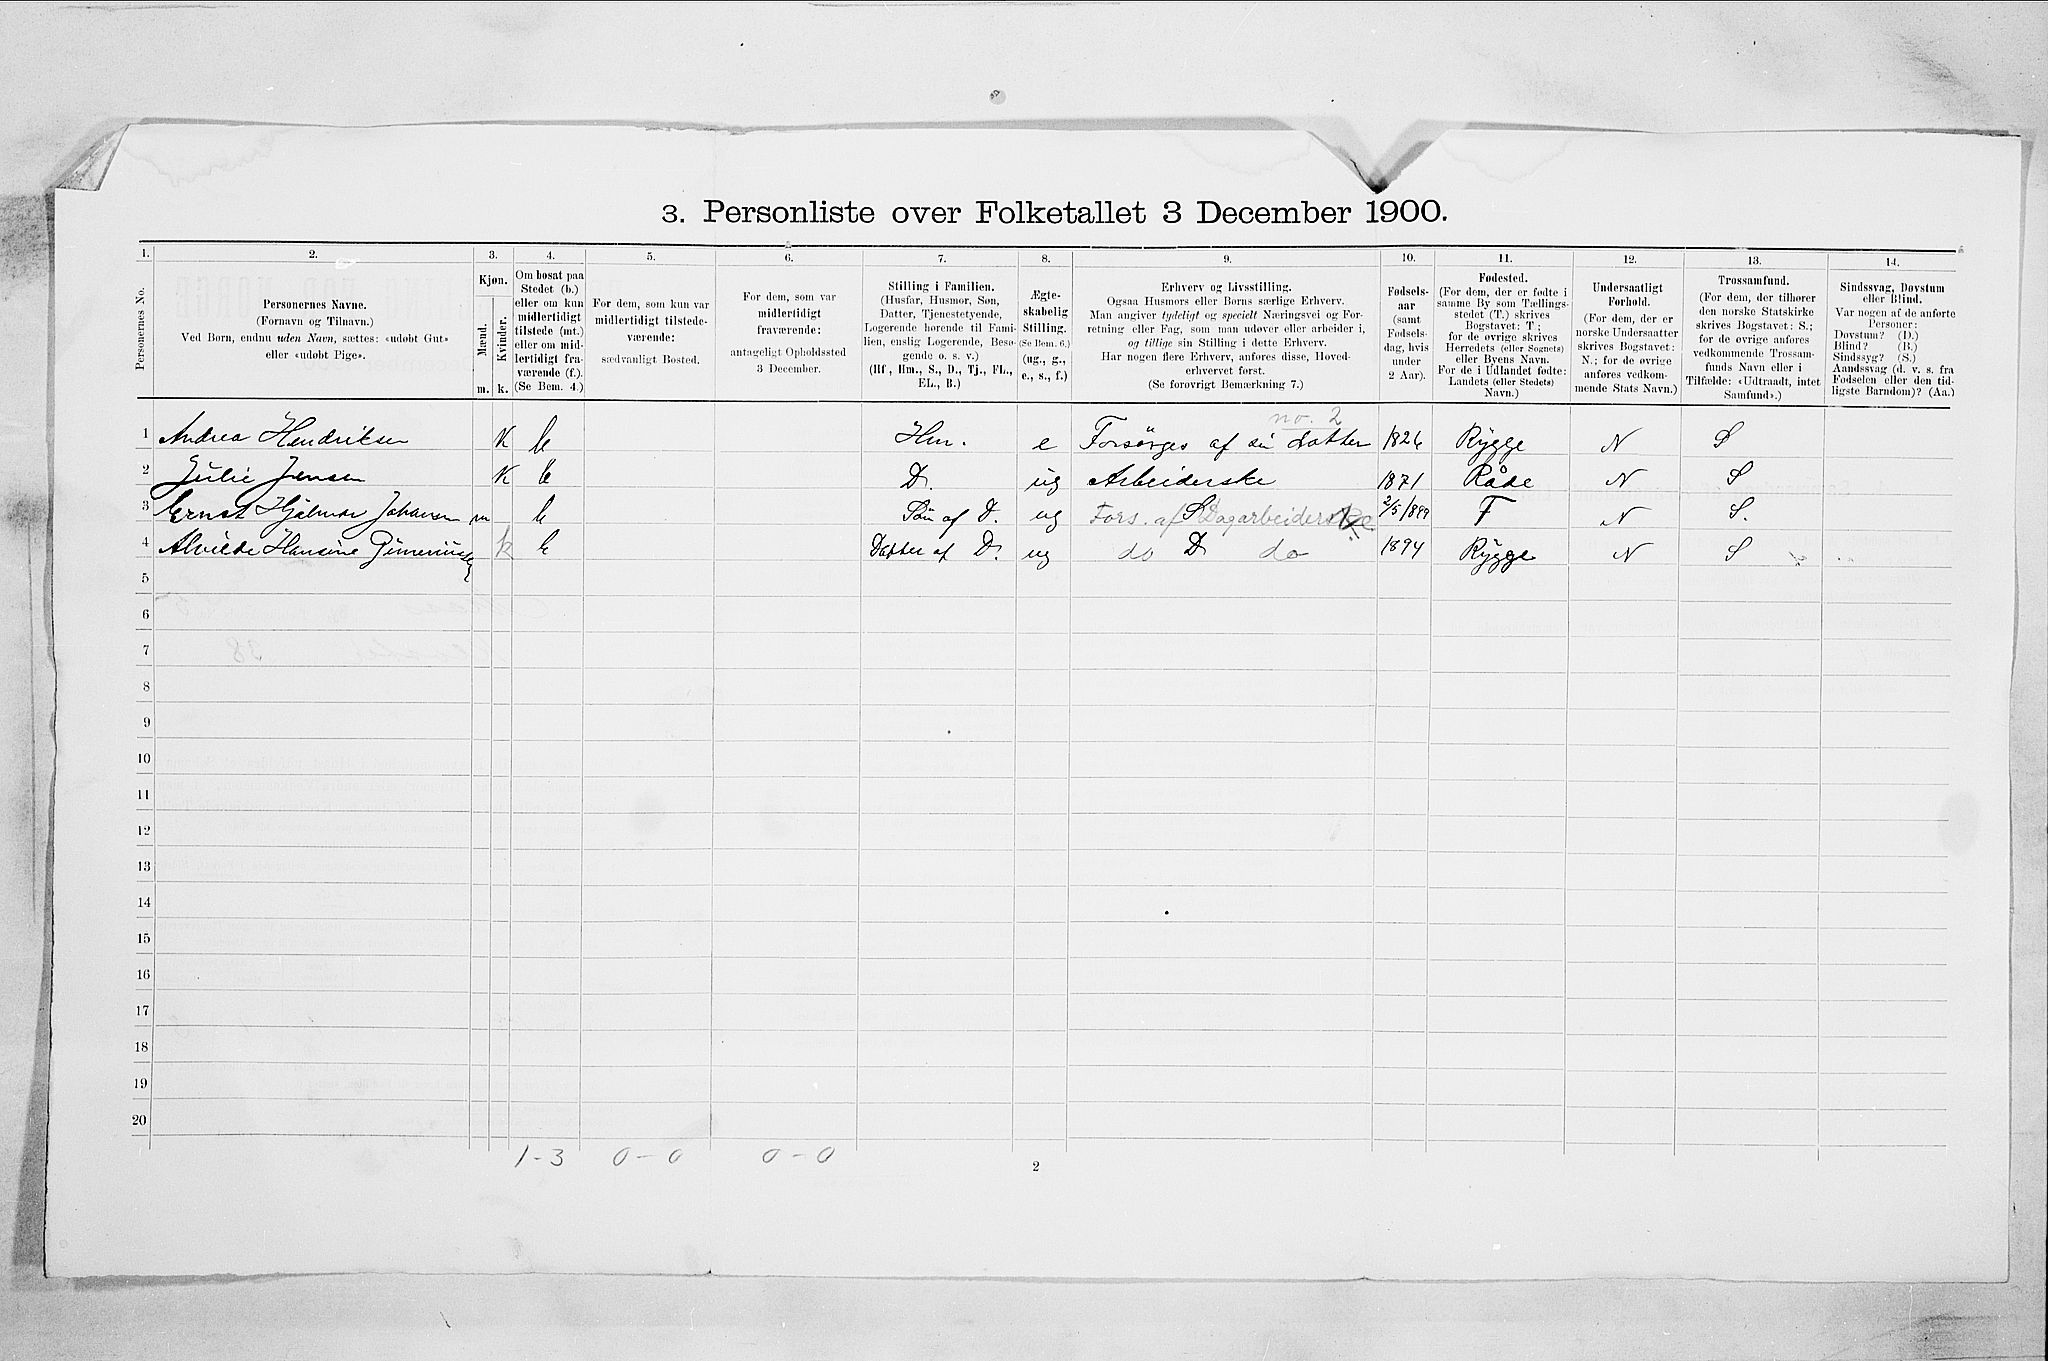 3. Personliste over Folketallet 3 December 1900.
1. 2. 3. 4. 5. 6. 7. 8. 9. 10. 11. 12. 13. 14.
Personernes No.
Personernes Navne.
(Fornavn og Tilnavn.)
Ved Børn, endnu uden Navn, sættes: «udøbt Gut»
eller «udøbt Pige».
Kjøn.
Mænd.
Kvinder.
m. k.
Om bosat paa
Stedet (b.)
eller om kun
midlertidigt
tilstede (mt.)
eller om mid-
lertidigt fra-
værende (f.).
(Se Bem. 4.)
For dem, som kun var
midlertidigt tilstede-
værende:
sædvanligt Bosted.
For dem, som var
midlertidigt
fraværende:
antageligt Opholdssted
3 December.
Stilling i Familien.
(Husfar, Husmor, Søn,
Datter, Tjenestetyende,
Logerende hørende til Fami-
lien, enslig Logerende, Besø-
gende o. s. v.)
(Hf., Hm., S., D., Tj., FL.,
EL., B.)
Ægte-
skabelig
Stilling.
(Se Bem. 6.)
(ug., g.,
e., s., f.)
Erhverv og Livsstilling.
Ogsaa Husmors eller Børns særlige Erhverv.
Man angiver tydeligt og specielt Næringsvei og For-
retning eller Fag, som man udøver eller arbeider i,
og tillige sin Stilling i dette Erhverv.
Har nogen flere Erhverv, anføres disse, Hoved-
erhvervet først.
(Se forøvrigt Bemærkning 7.)
Fødsels-
aar
(samt
Fødsels-
dag, hvis
under
2 Aar).
Fødested.
(For dem, der er fødte i
samme By som Tællings-
stedet (T.) skrives
Bogstavet: T;
for de øvrige skrives
Herredets (eller Sognets)
eller Byens Navn.
For de i Udlandet fødte:
Landets (eller Stedets)
Navn.)
Undersaatligt
Forhold.
(For dem, der er
norske Undersaatter
skrives Bogstavet:
N.; for de øvrige
anføres vedkom-
mende Stats Navn.)
Trossamfund.
(For dem, der tilhører
den norske Statskirke
skrives Bogstavet: S.;
for de øvrige anføres
vedkommende Trossam-
funds Navn eller i
Tilfælde: «Udtraadt, intet
Samfund».)
Sindssvag, Døvstum
eller Blind.
Var nogen af de anførte
Personer:
Døvstum? (D.)
Blind? (B.)
Sindssyg? (S.)
Aandssvag (d. v. s. fra
Fødselen eller den tid-
ligste Barndom)? (Aa.)
no. 2
1 Andrea Hendriksen K b Hm. e Forsörges af sin datter 1826 Rygge N S
2 Julie Jensen K b D. ug Arbeiderske 1871 Råde N S
3 Ernst Hjalmar Johansen m b Sön af D. ug Fors. af S Dagarbeiderske 2/5 1899 T N S.
4 Alvilde Hansine k b Datter af D. ug do D do 1894 Rygge N S
5
6
7
8
9
10
11
12
13
14
15
16
17
18
19
20
1-3 0-0 0-0
2